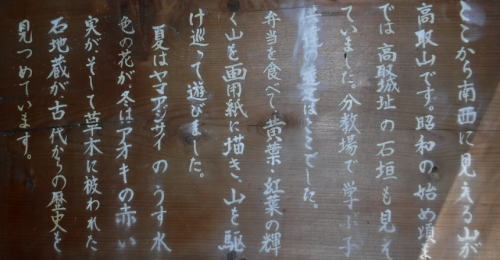 ここから南西に見える山が
高取山です。昭和の始め頃ま
では高取城址の石垣も見え
ていました。分教場で学ぶ子
はここでした。
弁当を食べて、黄葉・紅葉の輝
く山を画用紙に描き、山を駆
け巡って遊びました。
夏はヤマアジサイのうす水
色の花が、冬はアオキの赤い
実が、そして草木に被われた
石地蔵が古代からの歴史を
見つめています。